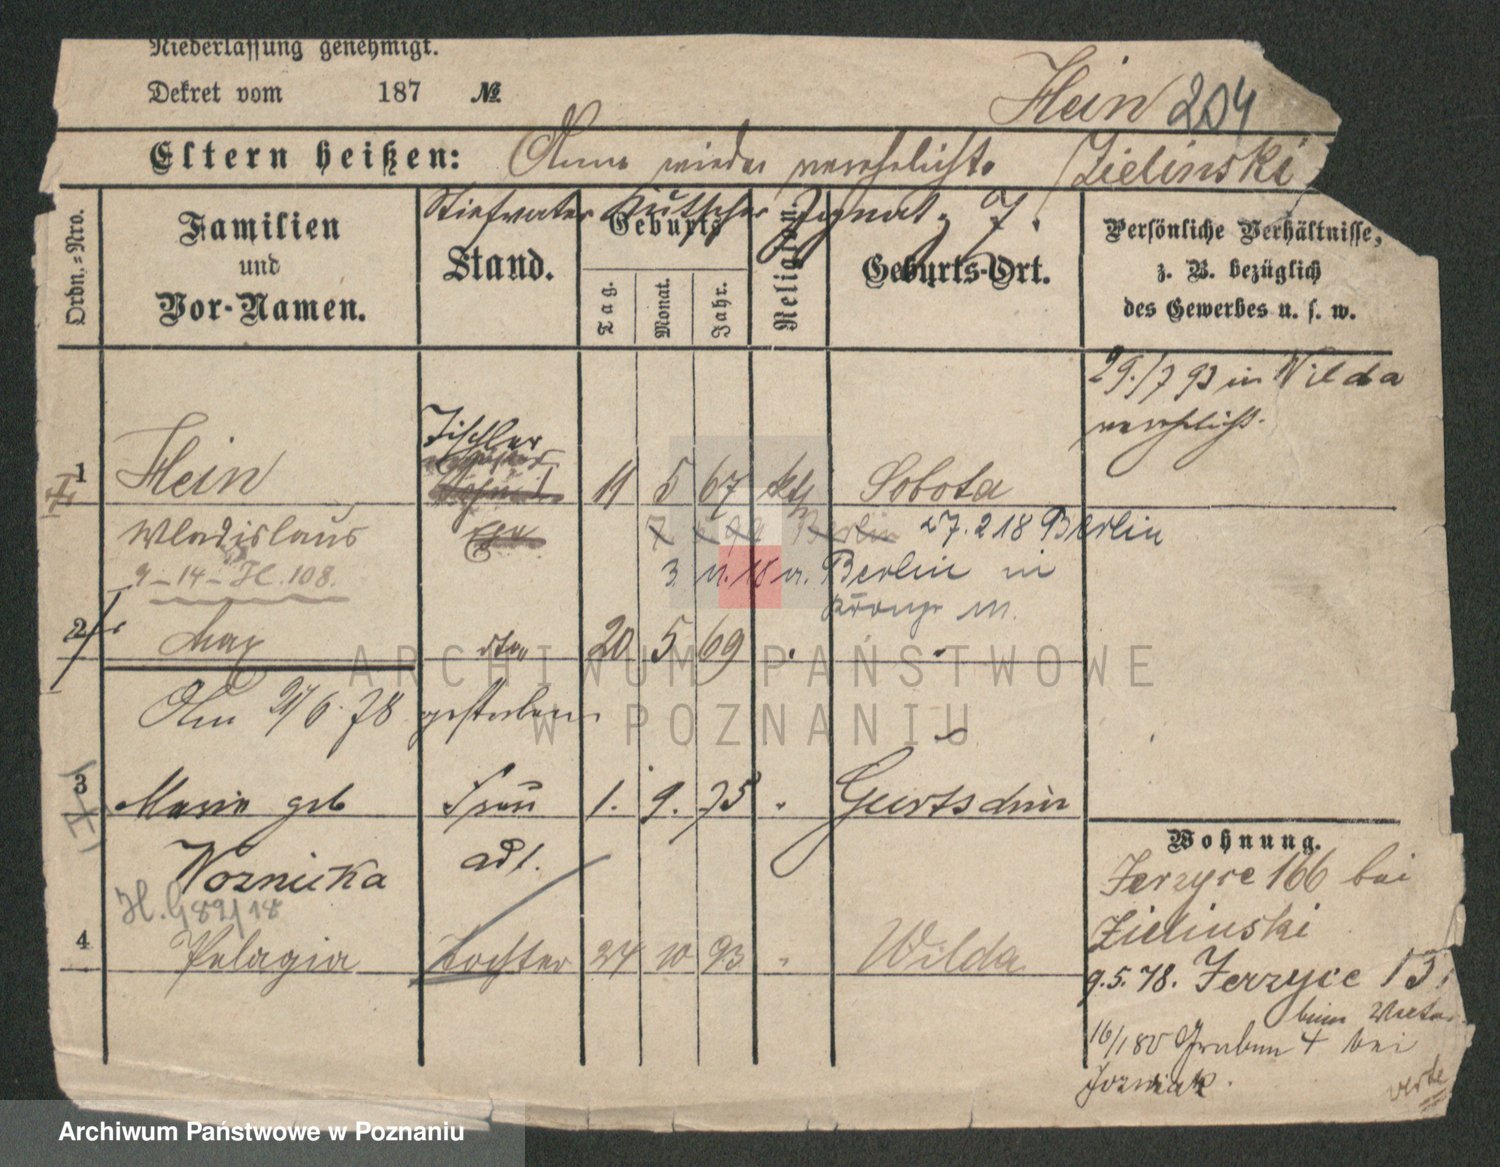 Niederlassung genehmigt.
Dekret vom 187 №
Hein 204
Eltern heißen: Anna wieder verehelichte Zielinski
Stiefvater Kutscher Ignatz Z.
Ordn.=Nro.
Familien
und
Vor-Namen.
Stand.
Geburts
Tag.
Monat.
Jahr.
Religion.
Geburts-Ort.
Persönliche Verhältnisse,
z. B. bezüglich
des Gewerbes u. s. w.
29./7 93 in Wilda
verehelicht.
Tischler
1 Hein 11 5 67 kth Sobota
Wladislaus 7 Berlin 27. 2 18 Berlin
9-14-H. 108. 3 11. 18 v. Berlin in
2 Max 20 5 69
Am 21/6. 78 gestorben
3 Marie geb Frau 1. 9. 75 " Gurtschin
Woznicka
H. G 89/18
4 Pelagia Tochter 24 10 93 " Wilda
Wohnung.
Jerzyce 166 bei
Zielinski
9.5.78. Jerzyce 13.
beim
16/1 80 Graben 4 bei
Jozwiak.
verte
ARCHIWUM PAŃSTWOWE
W POZNANIU
Archiwum Państwowe w Poznaniu